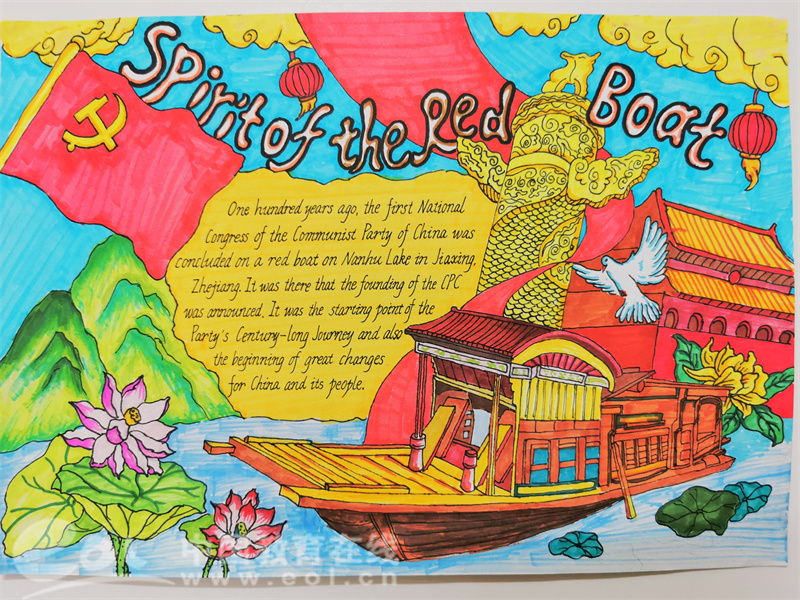 Spirit of the Red Boat
One hundred years ago, the first National
Congress of the Communist Party of China was
concluded on a red boat on Nanhu Lake in Jiaxing,
Zhejiang. It was there that the founding of the CPC
was announced. It was the starting point of the
Party's Century-long Journey and also
the beginning of great changes
for China and its people.
中国教育在线
www.eol.cn